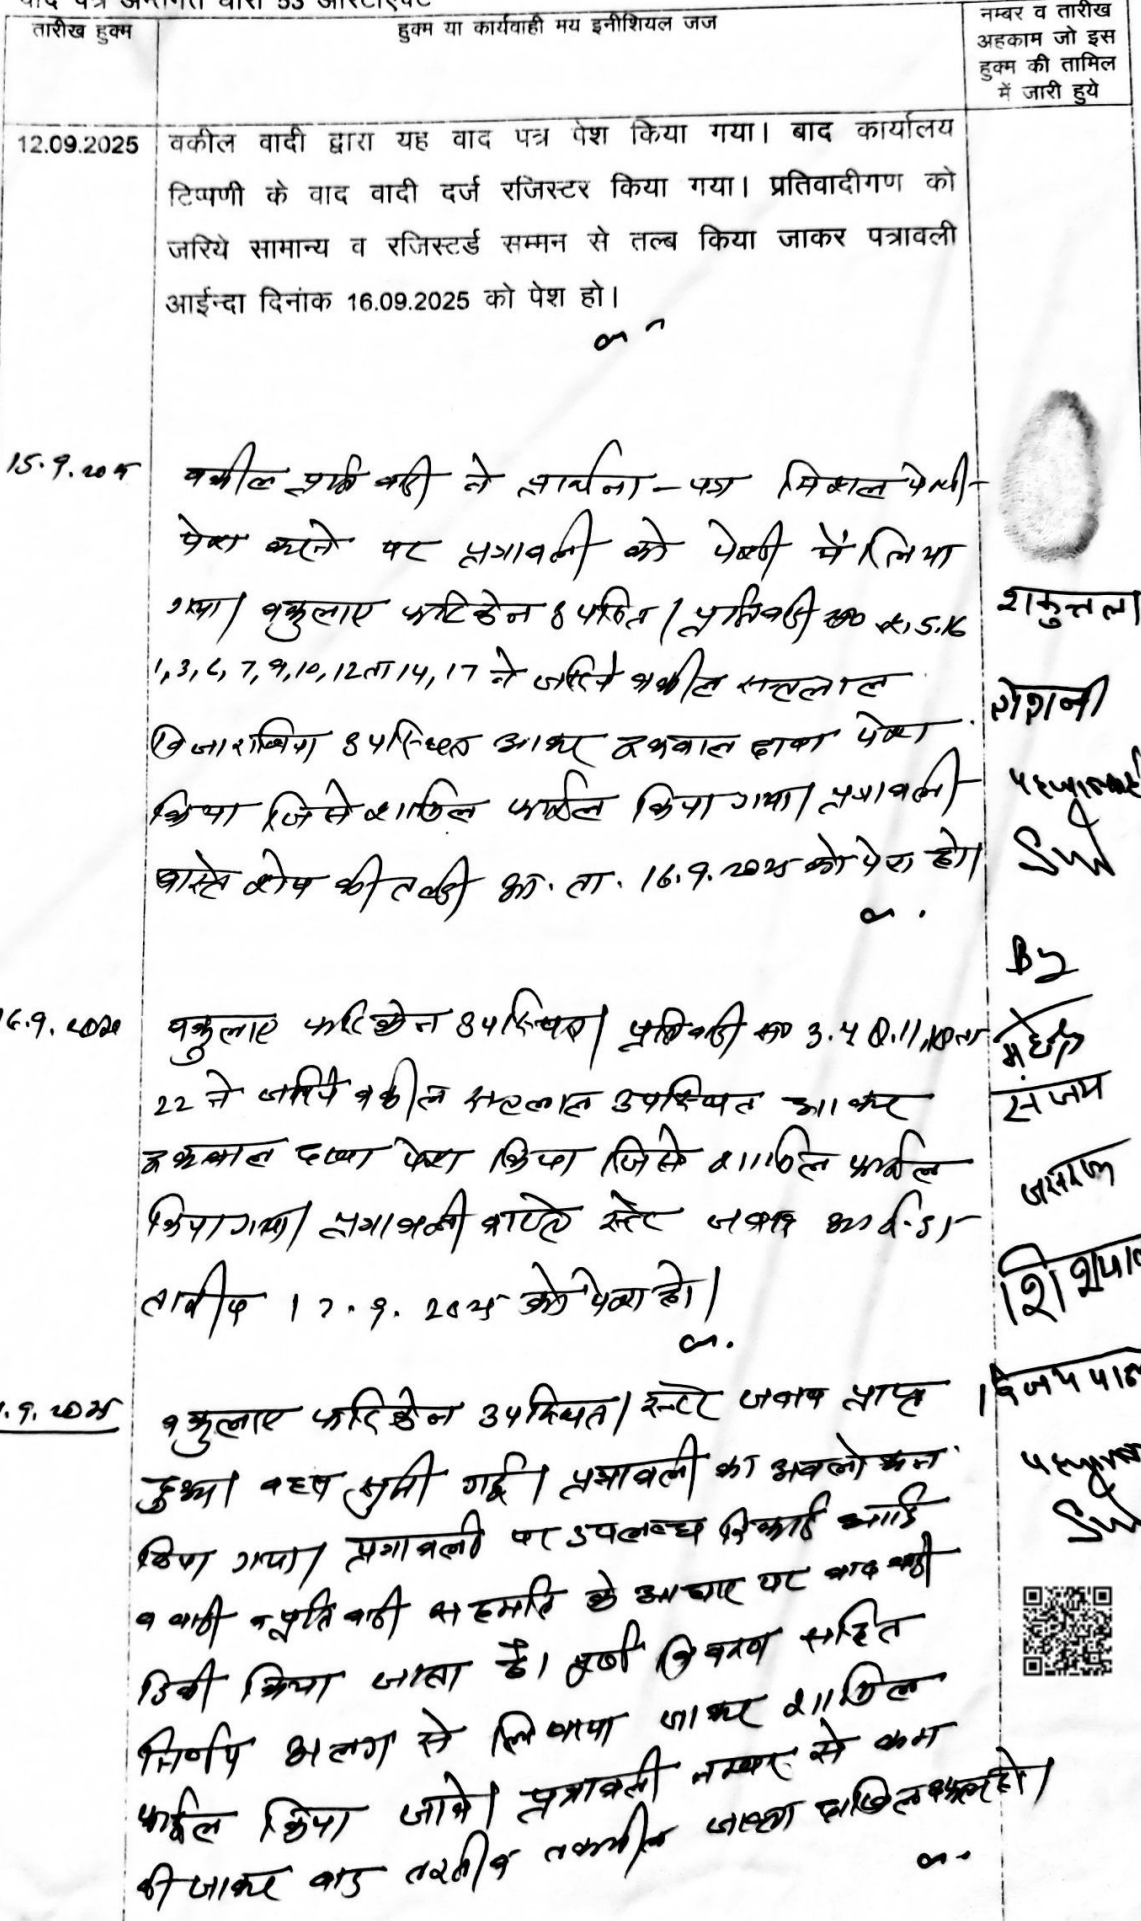 वाद पत्र अन्तर्गत धारा 53 आरटीएक्ट
तारीख हुक्म
हुक्म या कार्यवाही मय इनीशियल जज
नम्बर व तारीख
अहकाम जो इस
हुक्म की तामिल
में जारी हुये
12.09.2025
वकील वादी द्वारा यह वाद पत्र पेश किया गया। बाद कार्यालय
टिप्पणी के वाद वादी दर्ज रजिस्टर किया गया। प्रतिवादीगण को
जरिये सामान्य व रजिस्टर्ड सम्मन से तल्ब किया जाकर पत्रावली
आईन्दा दिनांक 16.09.2025 को पेश हो।
15.9.2025
वकील वादी ने प्रार्थना-पत्र मिसल पेशी
पेश करने पर पत्रावली को पेशी में लिया
गया। वकुलाए फरिकेन उपस्थित। प्रतिवादी सं०
1, 3, 6, 7, 9, 10, 12 ता 14, 17 ने जरिये वकील सन्तलाल
उपस्थित आकर इकबाल दावा पेश
किया जिसे शामिल फाईल किया गया। पत्रावली
वास्ते शेष की तलबी आ. ता. 16.9.2025 को पेश हो।
शकुन्तला
रोशनी
By
16.9.2025
वकुलाए फरिकेन उपस्थित। प्रतिवादी सं०
22 ने जरिये वकील सन्तलाल उपस्थित आकर
इकबाल दावा पेश किया जिसे शामिल फाईल
किया गया। पत्रावली वास्ते स्टेट जवाब आईन्दा
तारीख 17.9.2025 को पेश हो।
संजय
शिशपाल
विजयपाल
.9.2025
वकुलाए फरिकेन उपस्थित। स्टेट जवाब प्राप्त
हुआ। बहस सुनी गई। पत्रावली का अवलोकन
किया गया। पत्रावली पर उपलब्ध रिकार्ड आदि
व वादी व प्रतिवादी सहमति के आधार पर वाद वादी
डिक्री किया जाता है। पूर्ण विवरण सहित
निर्णय अलग से लिखाया जाकर शामिल
फाईल किया जावे। पत्रावली नम्बर से कम
की जाकर बाद तरतीब तकमील जाब्ता दाखिल दफ्तर हो।